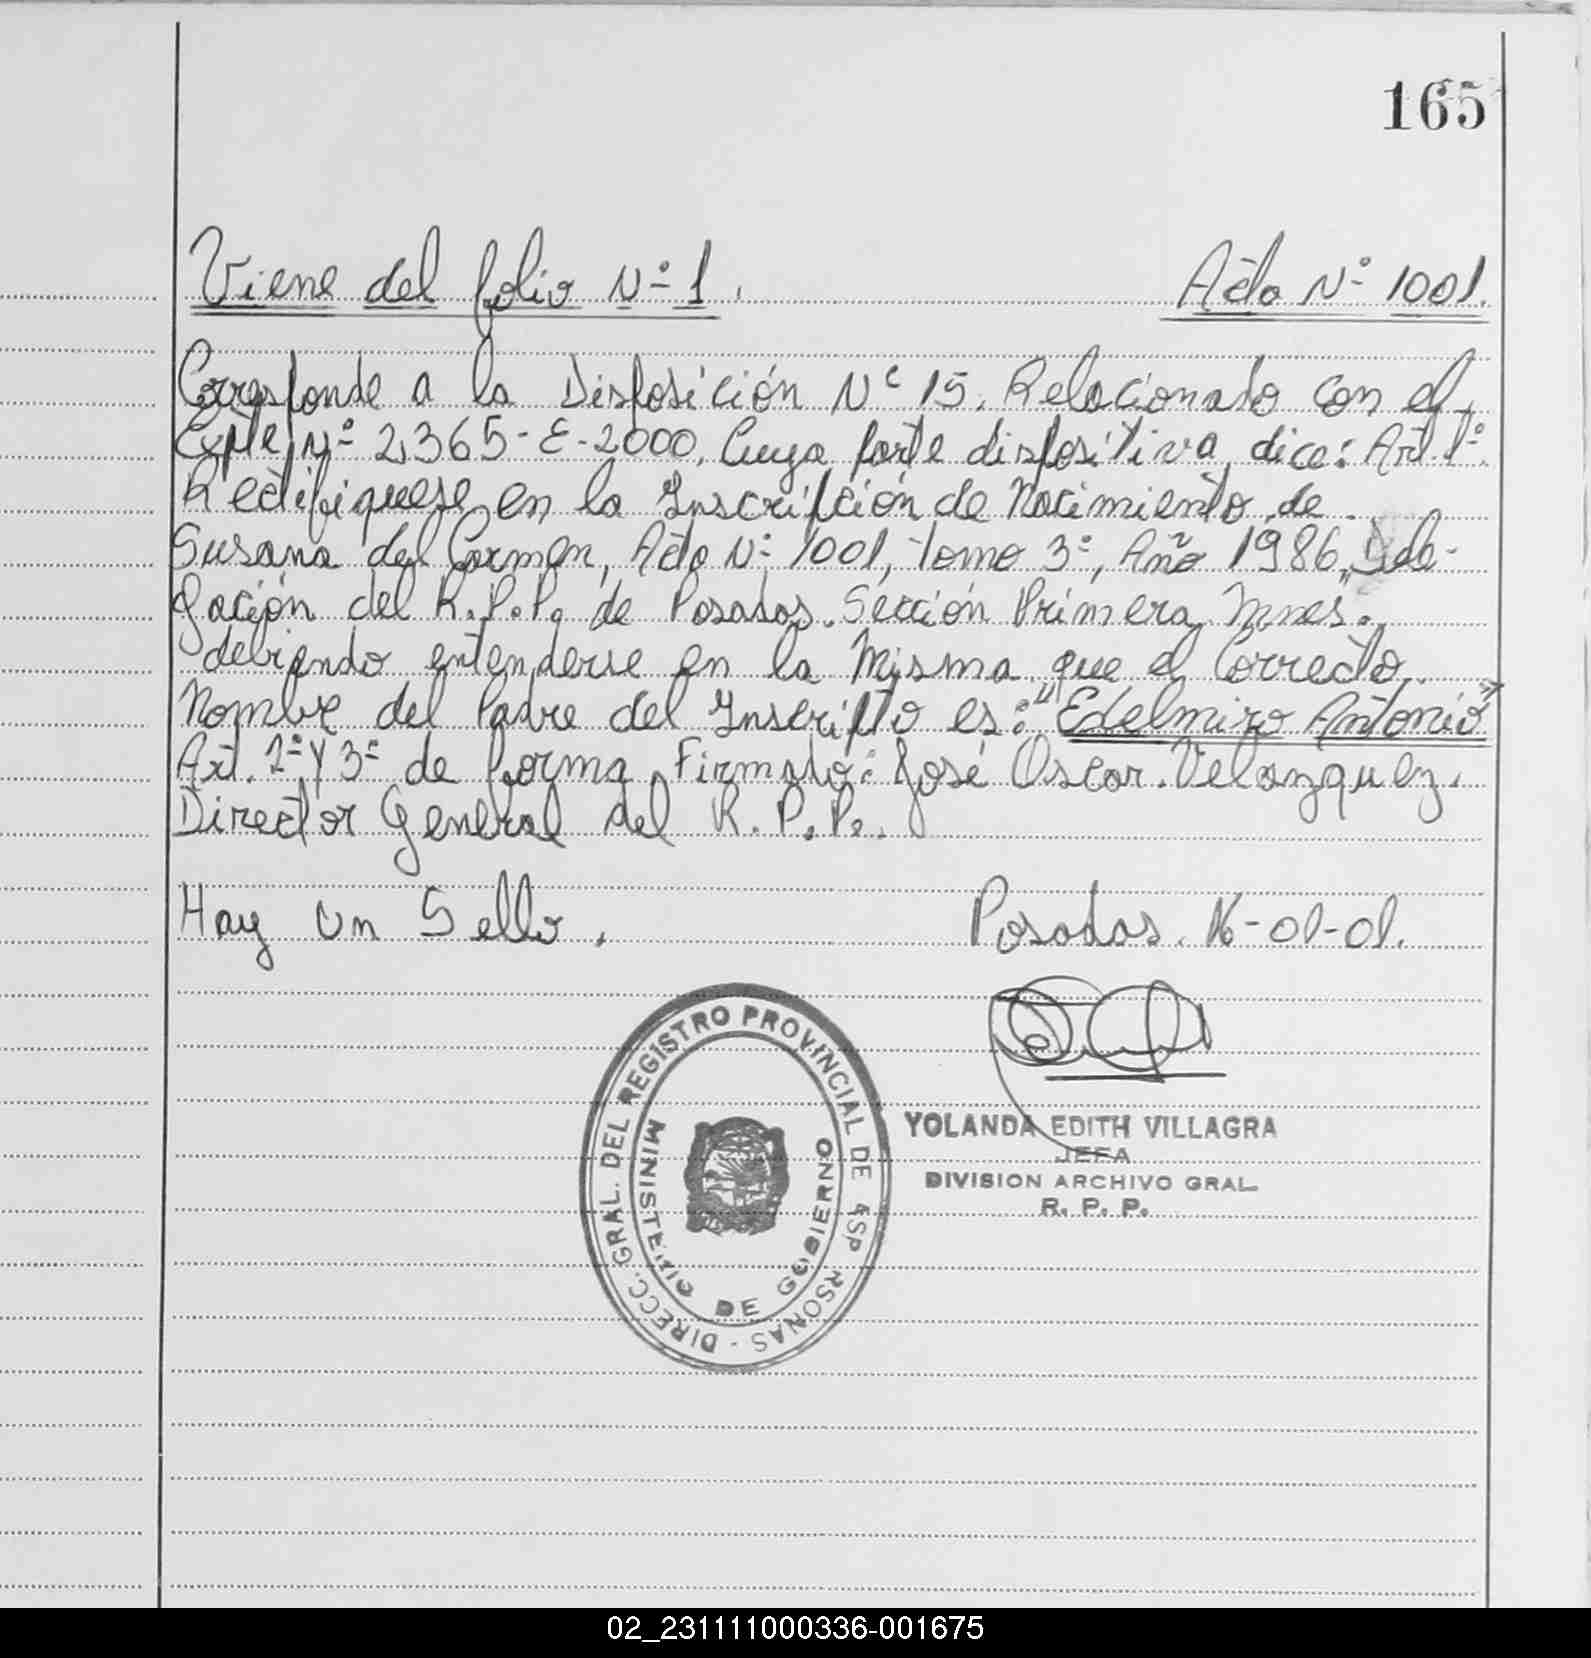 165
Viene del folio Nº 1. Acta Nº 1001.
Corresponde a la Disposición Nº 15. Relacionado con el
Expte Nº 2365-E-2000. Cuya parte dispositiva dice: Art. 1º
Rectifiquese en la Inscripción de Nacimiento de
Susana del Carmen, Acta Nº 1001, tomo 3º, Año 1986, Dele-
gación del R.P.P. de Posadas. Sección Primera Mnes.
debiendo entenderse en la Misma que el Correcto
Nombre del Padre del Inscripto es: "Edelmiro Antonio"
Art. 2º y 3º de forma. Firmado: José Oscar Velazquez.
Director General del R.P.P.
Hay un Sello. Posadas. 16-01-01.
DIRECC. GRAL. DEL REGISTRO PROVINCIAL DE RSONAS -
MINISTERIO DE GOBIERNO
YOLANDA EDITH VILLAGRA
JEFA
DIVISION ARCHIVO GRAL.
R. P. P.
02_231111000336-001675